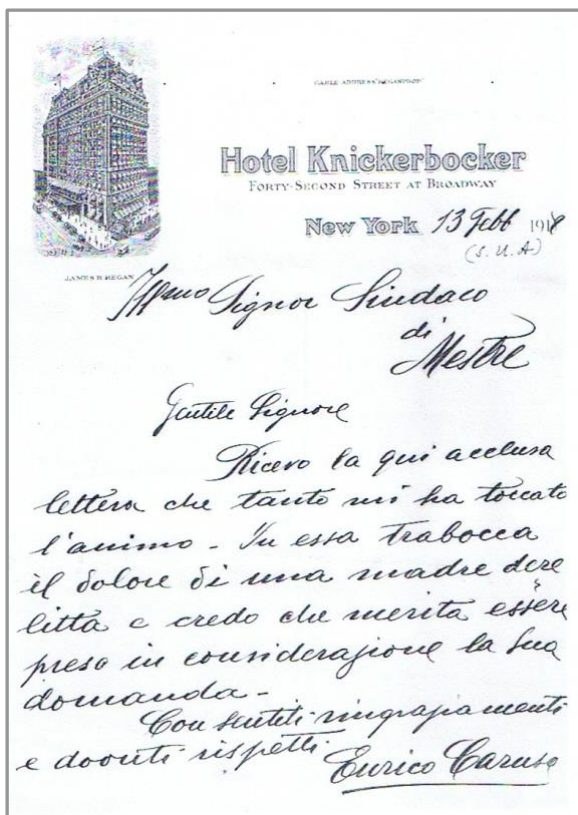 CABLE ADDRESS
Hotel Knickerbocker
FORTY-SECOND STREET AT BROADWAY
New York 13 Febb 1918
(S. U. A.)
JAMES B REGAN
Illmo Signor Sindaco
di
Mestre
Gentile Signore
Ricevo la qui acclusa
lettera che tanto mi ha toccato
l'animo - In essa trabocca
il dolore di una madre dere
litta e credo che merita essere
preso in considerazione la sua
domanda -
Con sentiti ringraziamenti
e dovuti rispetti
Enrico Caruso